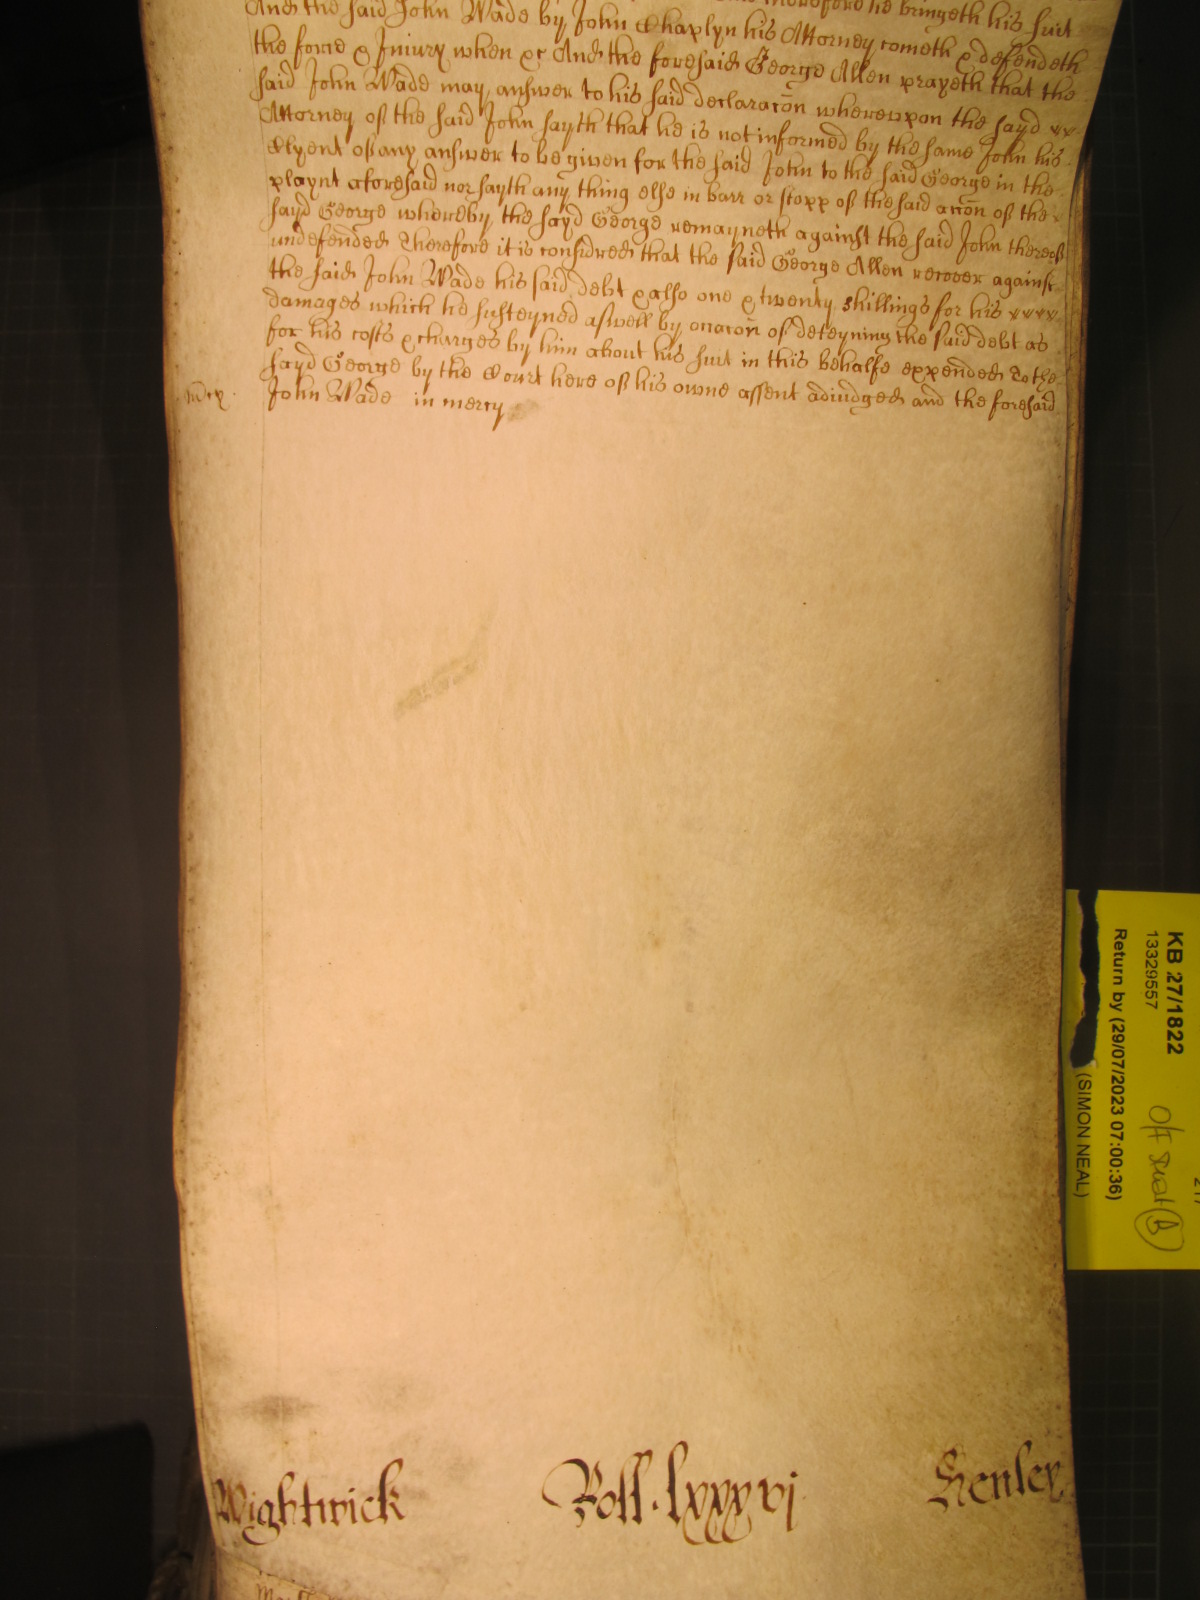 therefore he bringeth his suit
And the said John Wade by John Chaplyn his Attorney cometh & defendeth
the force & Iniury when &c And the foresaid George Allen prayeth that the
said John Wade may answer to his said declaracõn wherevpon the sayd
Attorney of the said John sayth that he is not informed by the same John his
Clyent of any answer to be given for the said John to the said George in the
playnt aforesaid nor sayth any thing else in barr or stopp of the said accõn of the
sayd George whereby the sayd George remayneth against the said John thereof
undefended Therefore it is considred that the said George Allen recover against
the said John Wade his said debt & also one & twenty shillings for his
damages which he susteyned aswell by occacõn of deteyning the said debt as
for his costs & charges by him about his suit in this behalfe expended To the
sayd George by the Court here of his owne assent adiudged and the foresaid
John Wade in mercy
Wightwick Roll. lxxxvj Henley
KB 27/1822
13329557
Return by (29/07/2023 07:00:36)
(SIMON NEAL)